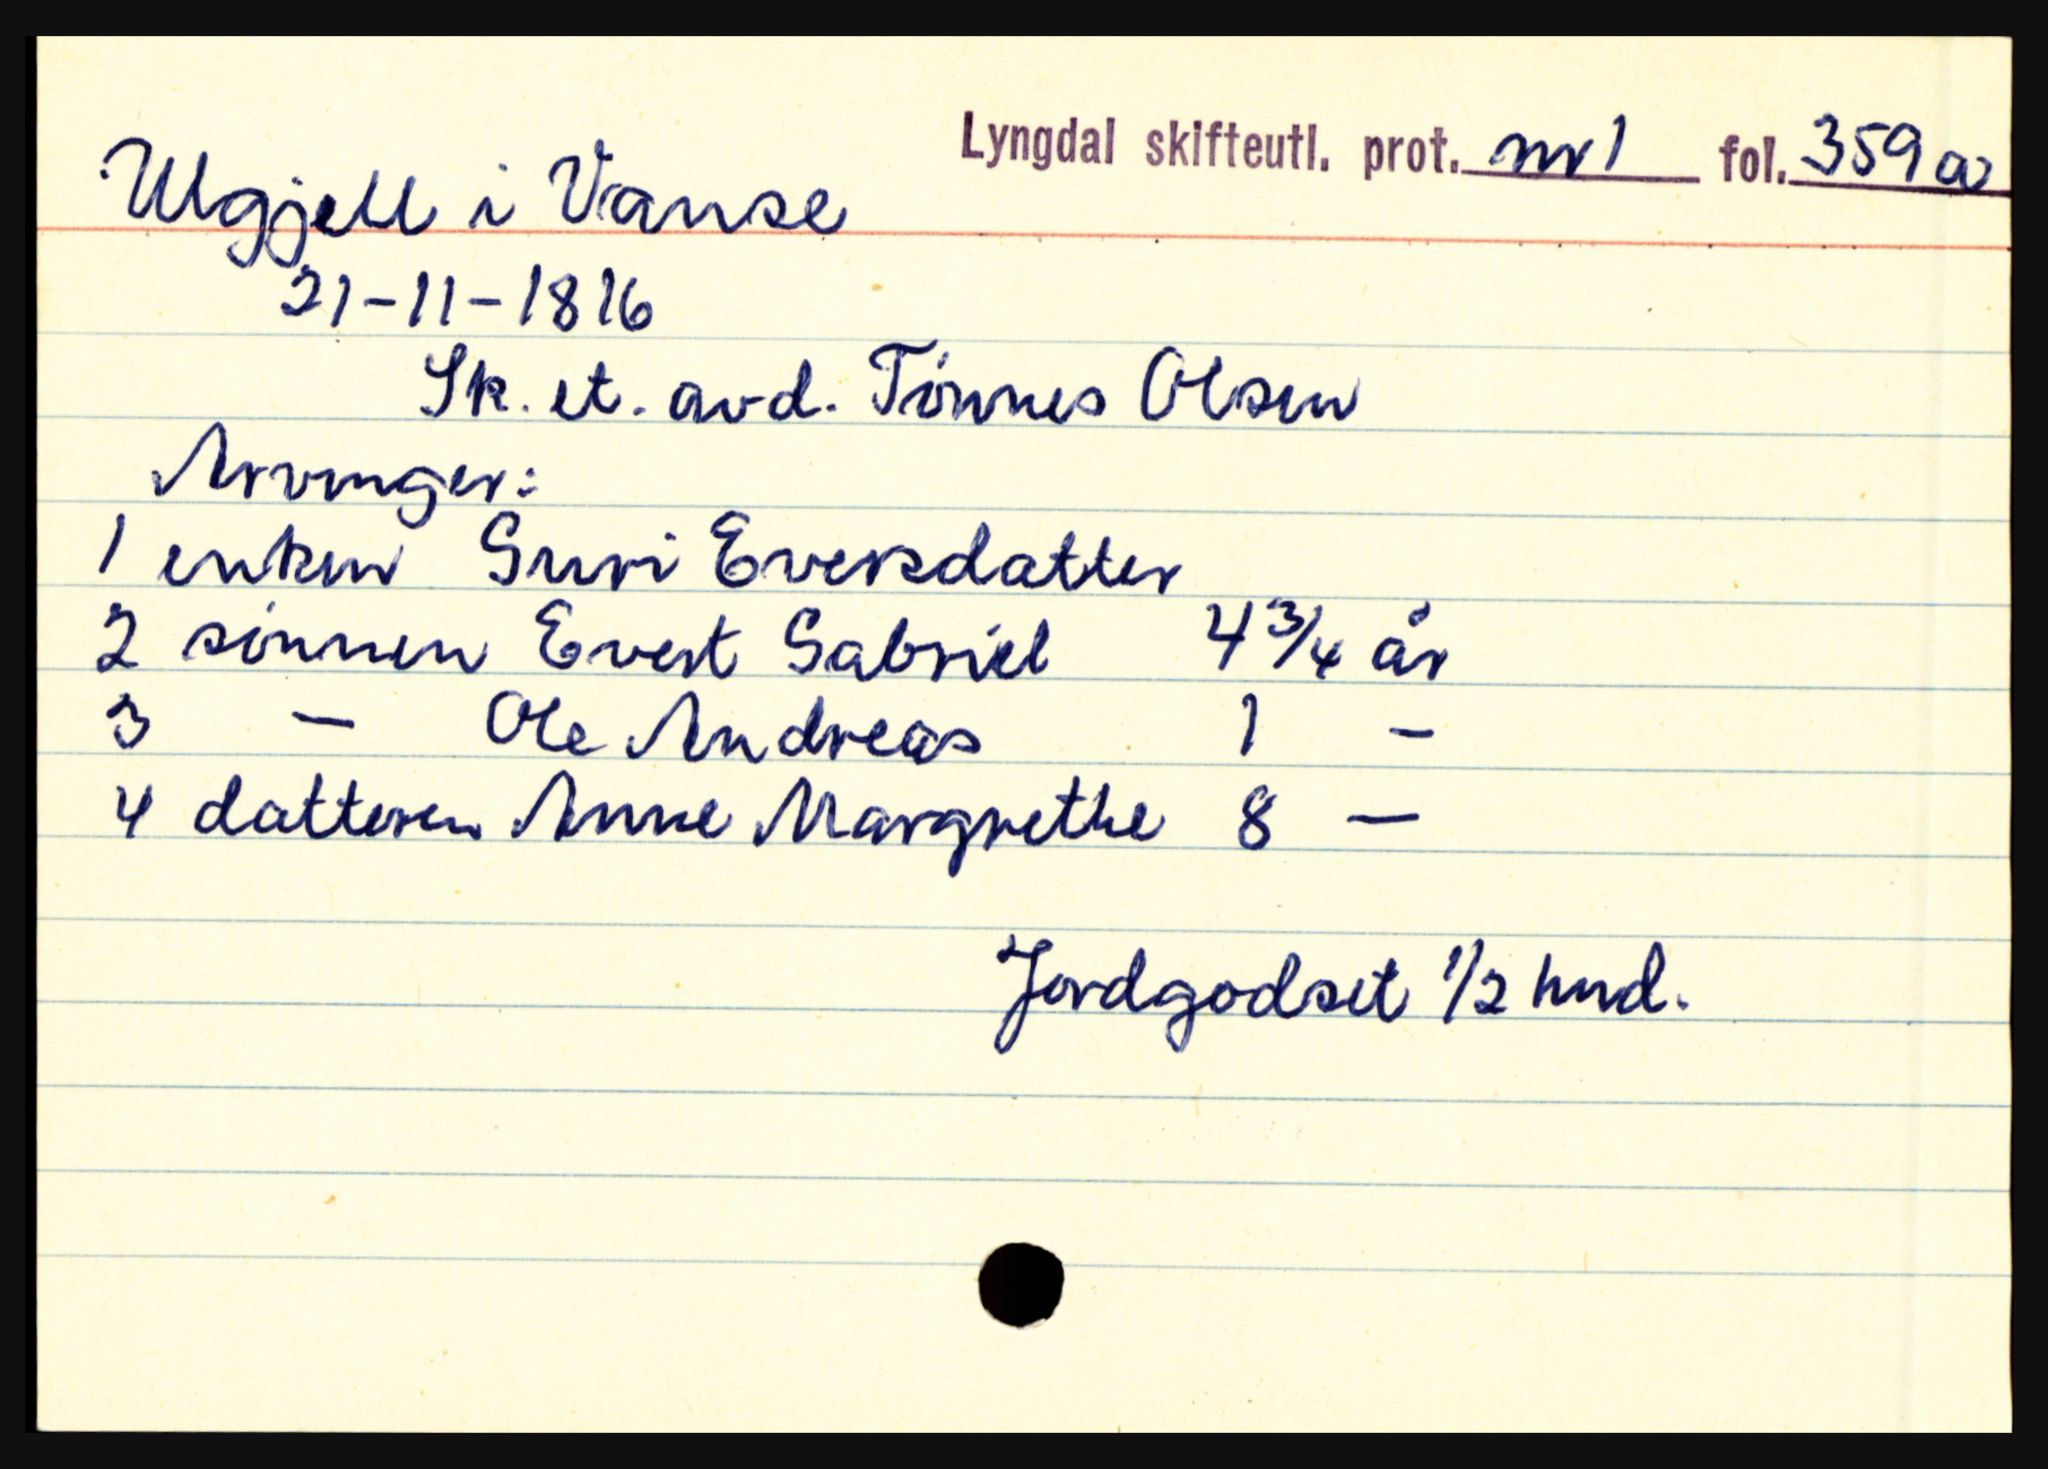 Lyngdal skifteutl. prot. nr 1 fol. 359 a
Ulgjell i Vanse
21-11-1816
Sk. et. avd. Tønnes Olsen
Arvinger:
1 enken Guri Eversdatter
2 sønnen Evert Gabriel 4 3/4 år
3 - Ole Andreas 1 -
4 datteren Anne Margrethe 8 -
Jordgodset 1/2 hud.